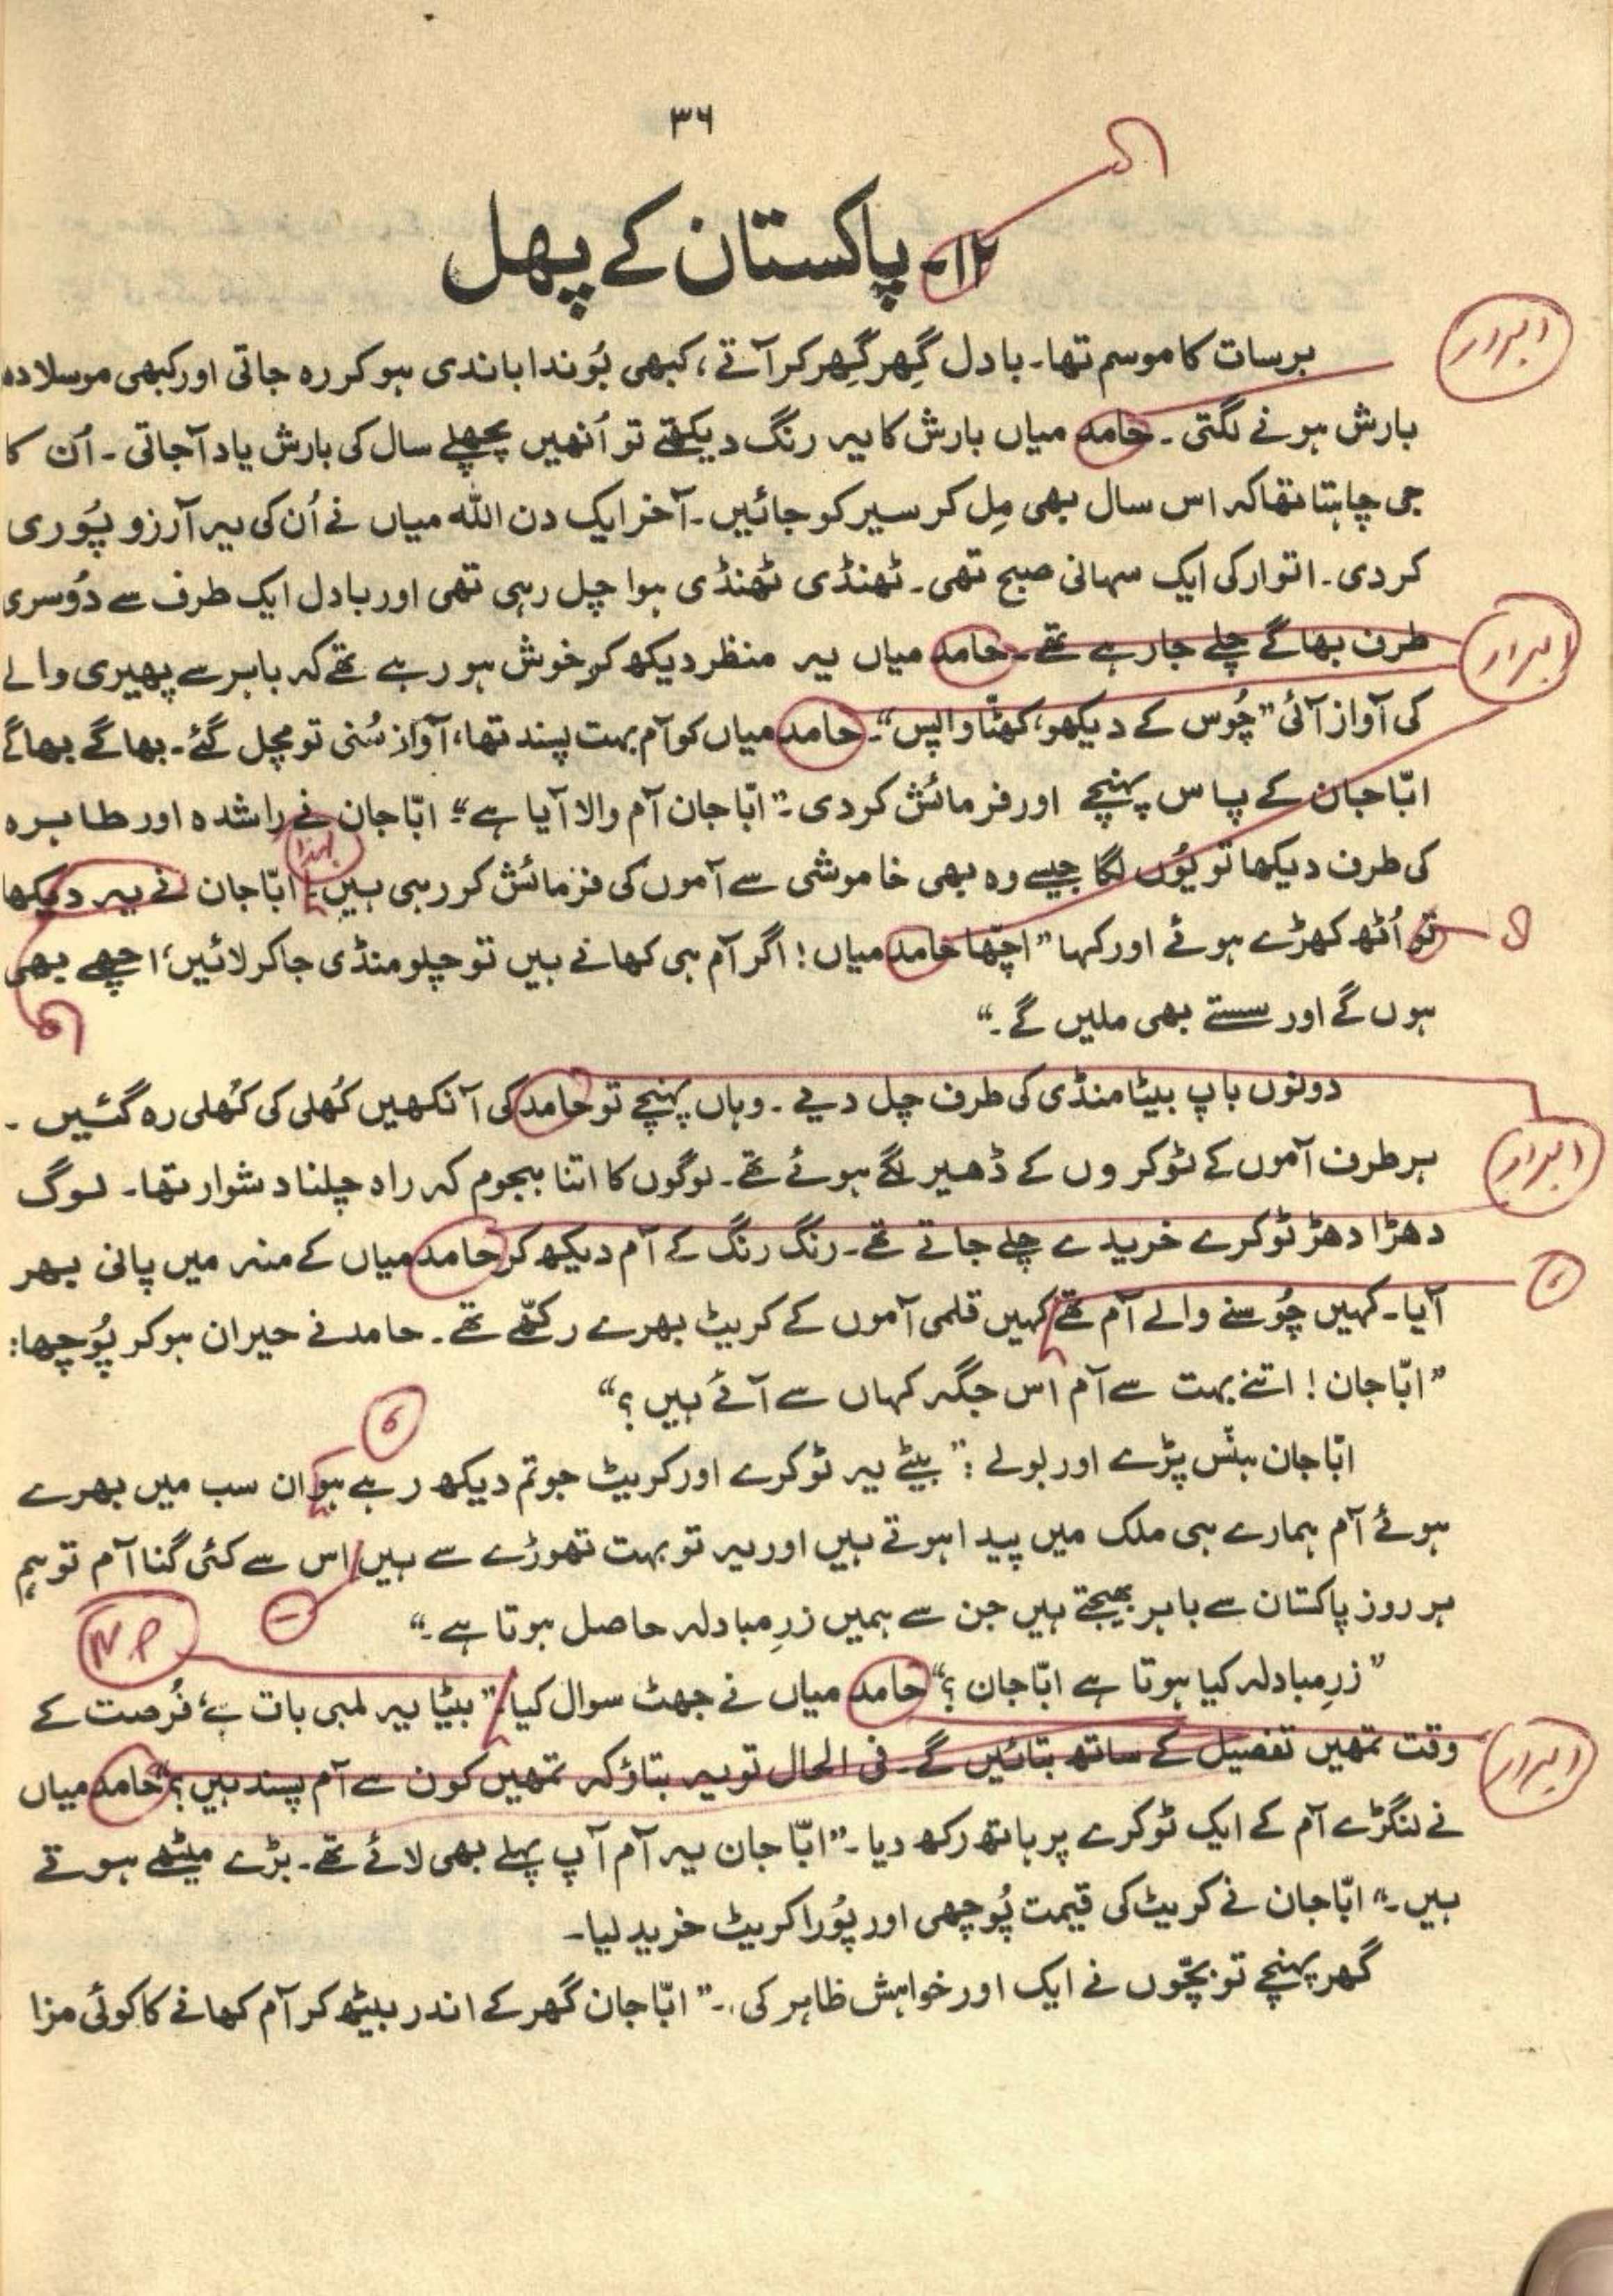 ۳۶
۱۲۔ پاکستان کے پھل
ابرار
برسات کا موسم تھا۔ بادل گِھر گِھر کر آتے، کبھی بُوندا باندی ہو کر رہ جاتی اور کبھی موسلا دھ
بارش ہونے لگتی۔ حامد میاں بارش کا یہ رنگ دیکھتے تو اُنھیں پچھلے سال کی بارش یاد آجاتی۔ اُن کا
جی چاہتا تھا کہ اس سال بھی مِل کر سیر کو جائیں۔ آخر ایک دن اللہ میاں نے اُن کی یہ آرزو پُوری
کر دی۔ اتوار کی ایک سہانی صبح تھی۔ ٹھنڈی ٹھنڈی ہوا چل رہی تھی اور بادل ایک طرف سے دُوسری
طرف بھاگے چلے جا رہے تھے۔ حامد میاں یہ منظر دیکھ کر خوش ہو رہے تھے کہ باہر سے پھیری والے
ابرار
کی آواز آئی ”چُوس کے دیکھو، کھٹّا واپس“۔ حامد میاں کو آم بہت پسند تھا، آواز سُنی تو مچل گئے۔ بھاگے بھاگے
ابّا جان کے پاس پہنچے اور فرمائش کر دی۔ ”ابّا جان آم والا آیا ہے“۔ ابّا جان نے راشدہ اور طاہرہ
لہٰذا
کی طرف دیکھا تو یُوں لگا جیسے وہ بھی خاموشی سے آموں کی فرمائش کر رہی ہیں۔ ابّا جان نے یہ دیکھا
تو اُٹھ کھڑے ہوئے اور کہا ”اچّھا حامد میاں! اگر آم ہی کھانے ہیں تو چلو منڈی جا کر لائیں، اچھے بھی
ہوں گے اور سستے بھی ملیں گے۔“
دونوں باپ بیٹا منڈی کی طرف چل دیے۔ وہاں پہنچے تو حامد کی آنکھیں کُھلی کی کُھلی رہ گئیں۔
ابرار
ہر طرف آموں کے ٹوکروں کے ڈھیر لگے ہوئے تھے۔ لوگوں کا اتنا ہجوم کہ راہ چلنا دشوار تھا۔ لوگ
دھڑا دھڑ ٹوکرے خریدے چلے جاتے تھے۔ رنگ رنگ کے آم دیکھ کر حامد میاں کے منہ میں پانی بھر
،
آیا۔ کہیں چُوسنے والے آم تھے کہیں قلمی آموں کے کریٹ بھرے رکھّے تھے۔ حامد نے حیران ہو کر پُوچھا:
”ابّا جان! اتنے بہت سے آم اس جگہ کہاں سے آئے ہیں؟“
،
ابّا جان ہنس پڑے اور بولے: ”بیٹے یہ ٹوکرے اور کریٹ جو تم دیکھ رہے ہو ان سب میں بھرے
ہوئے آم ہمارے ہی ملک میں پیدا ہوتے ہیں اور یہ تو بہت تھوڑے سے ہیں اس سے کئی گنا آم تو ہم
۔
ہر روز پاکستان سے باہر بھیجتے ہیں جن سے ہمیں زرِمبادلہ حاصل ہوتا ہے۔“
N.P
”زرِمبادلہ کیا ہوتا ہے ابّا جان؟“ حامد میاں نے جھٹ سوال کیا۔ ”بیٹا یہ لمبی بات ہے، فُرصت کے
ابرار
وقت تمھیں تفصیل کے ساتھ بتائیں گے۔ فی الحال تو یہ بتاؤ کہ تمھیں کون سے آم پسند ہیں؟“ حامد میاں
نے لنگڑے آم کے ایک ٹوکرے پر ہاتھ رکھ دیا۔ ”ابّا جان یہ آم آپ پہلے بھی لائے تھے۔ بڑے میٹھے ہوتے
ہیں۔“ ابّا جان نے کریٹ کی قیمت پُوچھی اور پُورا کریٹ خرید لیا۔
گھر پہنچے تو بچّوں نے ایک اور خواہش ظاہر کی۔ ”ابّا جان گھر کے اندر بیٹھ کر آم کھانے کا کوئی مزا